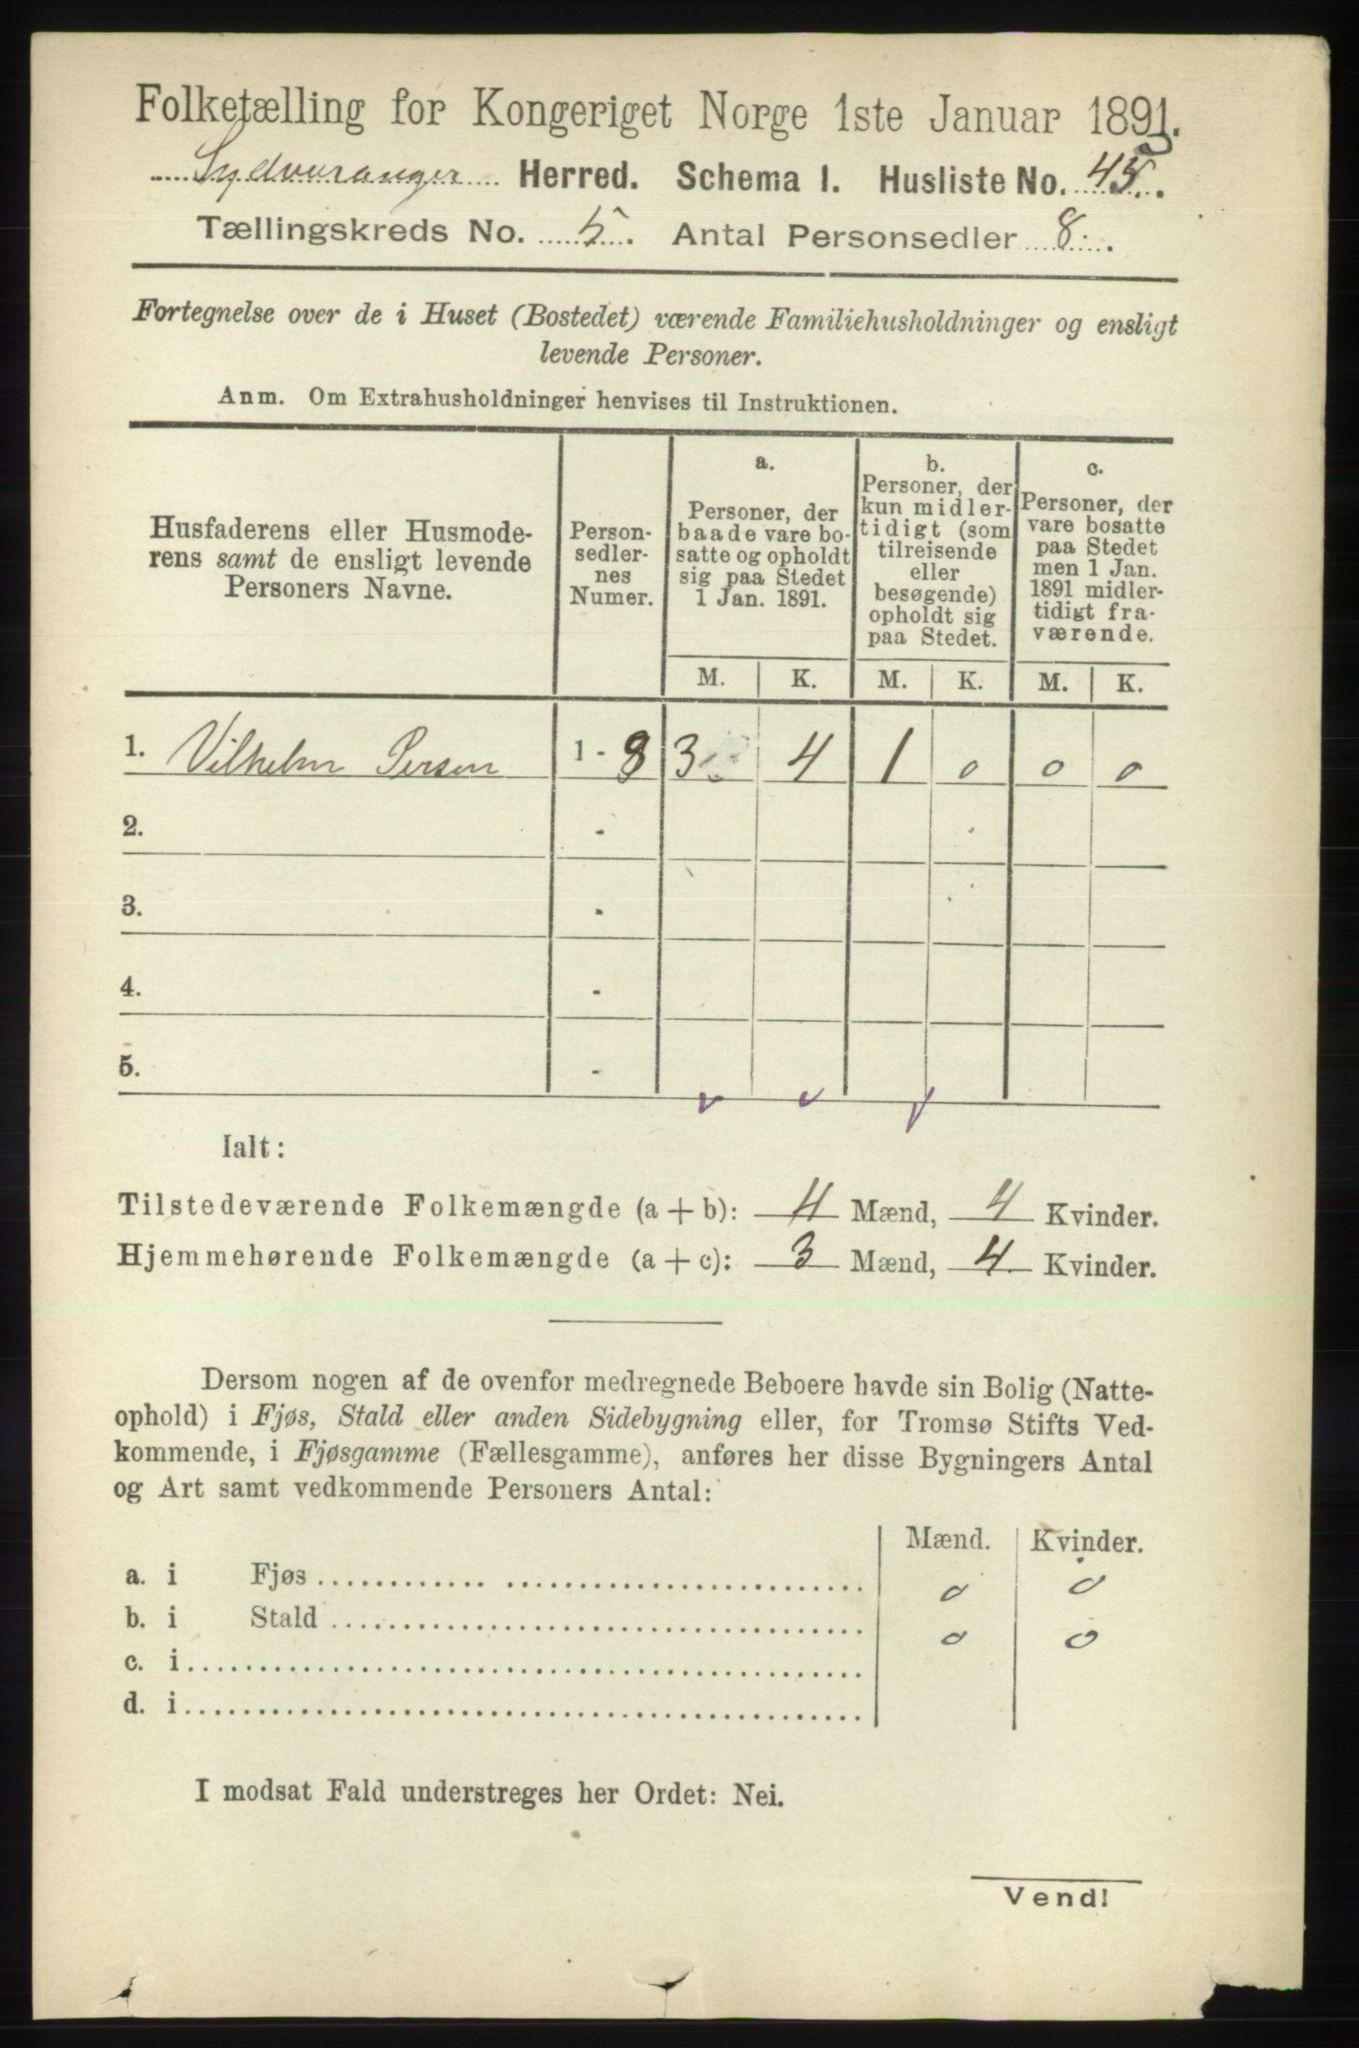 Folketælling for Kongeriget Norge 1ste Januar 1891.
Sydvaranger Herred. Schema I. Husliste No. 45.
Tællingskreds No. 5. Antal Personsedler 8.
Fortegnelse over de i Huset (Bostedet) værende Familiehusholdninger og ensligt
levende Personer.
Anm. Om Extrahusholdninger henvises til Instruktionen.
Husfaderens eller Husmode-
rens samt de ensligt levende
Personers Navne.
Person-
sedler-
nes
Numer.
a.
Personer, der
baade vare bo-
satte og opholdt
sig paa Stedet
1 Jan. 1891.
b.
Personer, der
kun midler-
tidigt (som
tilreisende
eller
besøgende)
opholdt sig
paa Stedet.
c.
Personer, der
vare bosatte
paa Stedet
men 1 Jan.
1891 midler-
tidigt fra-
værende.
M. K. M. K. M. K.
1. Vilhelm Persen 1 - 8 3 4 1 0 0 0
2. -
3. -
4. -
5. -
Ialt:
Tilstedeværende Folkemængde (a + b): 4 Mænd, 4 Kvinder.
Hjemmehørende Folkemængde (a + c): 3 Mænd, 4 Kvinder.
Dersom nogen af de ovenfor medregnede Beboere havde sin Bolig (Natte-
ophold) i Fjøs, Stald eller anden Sidebygning eller, for Tromsø Stifts Ved-
kommende, i Fjøsgamme (Fællesgamme), anføres her disse Bygningers Antal
og Art samt vedkommende Personers Antal:
Mænd. Kvinder.
a. i Fjøs 0 0
b. i Stald 0 0
c. i
d. i
I modsat Fald understreges her Ordet: Nei.
Vend!